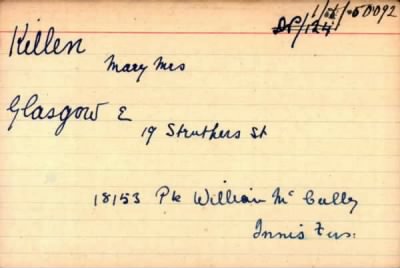 Killen
Mary Mrs
Glasgow E
19 Struthers St
18153 Pte William McCally
Innis Fus: